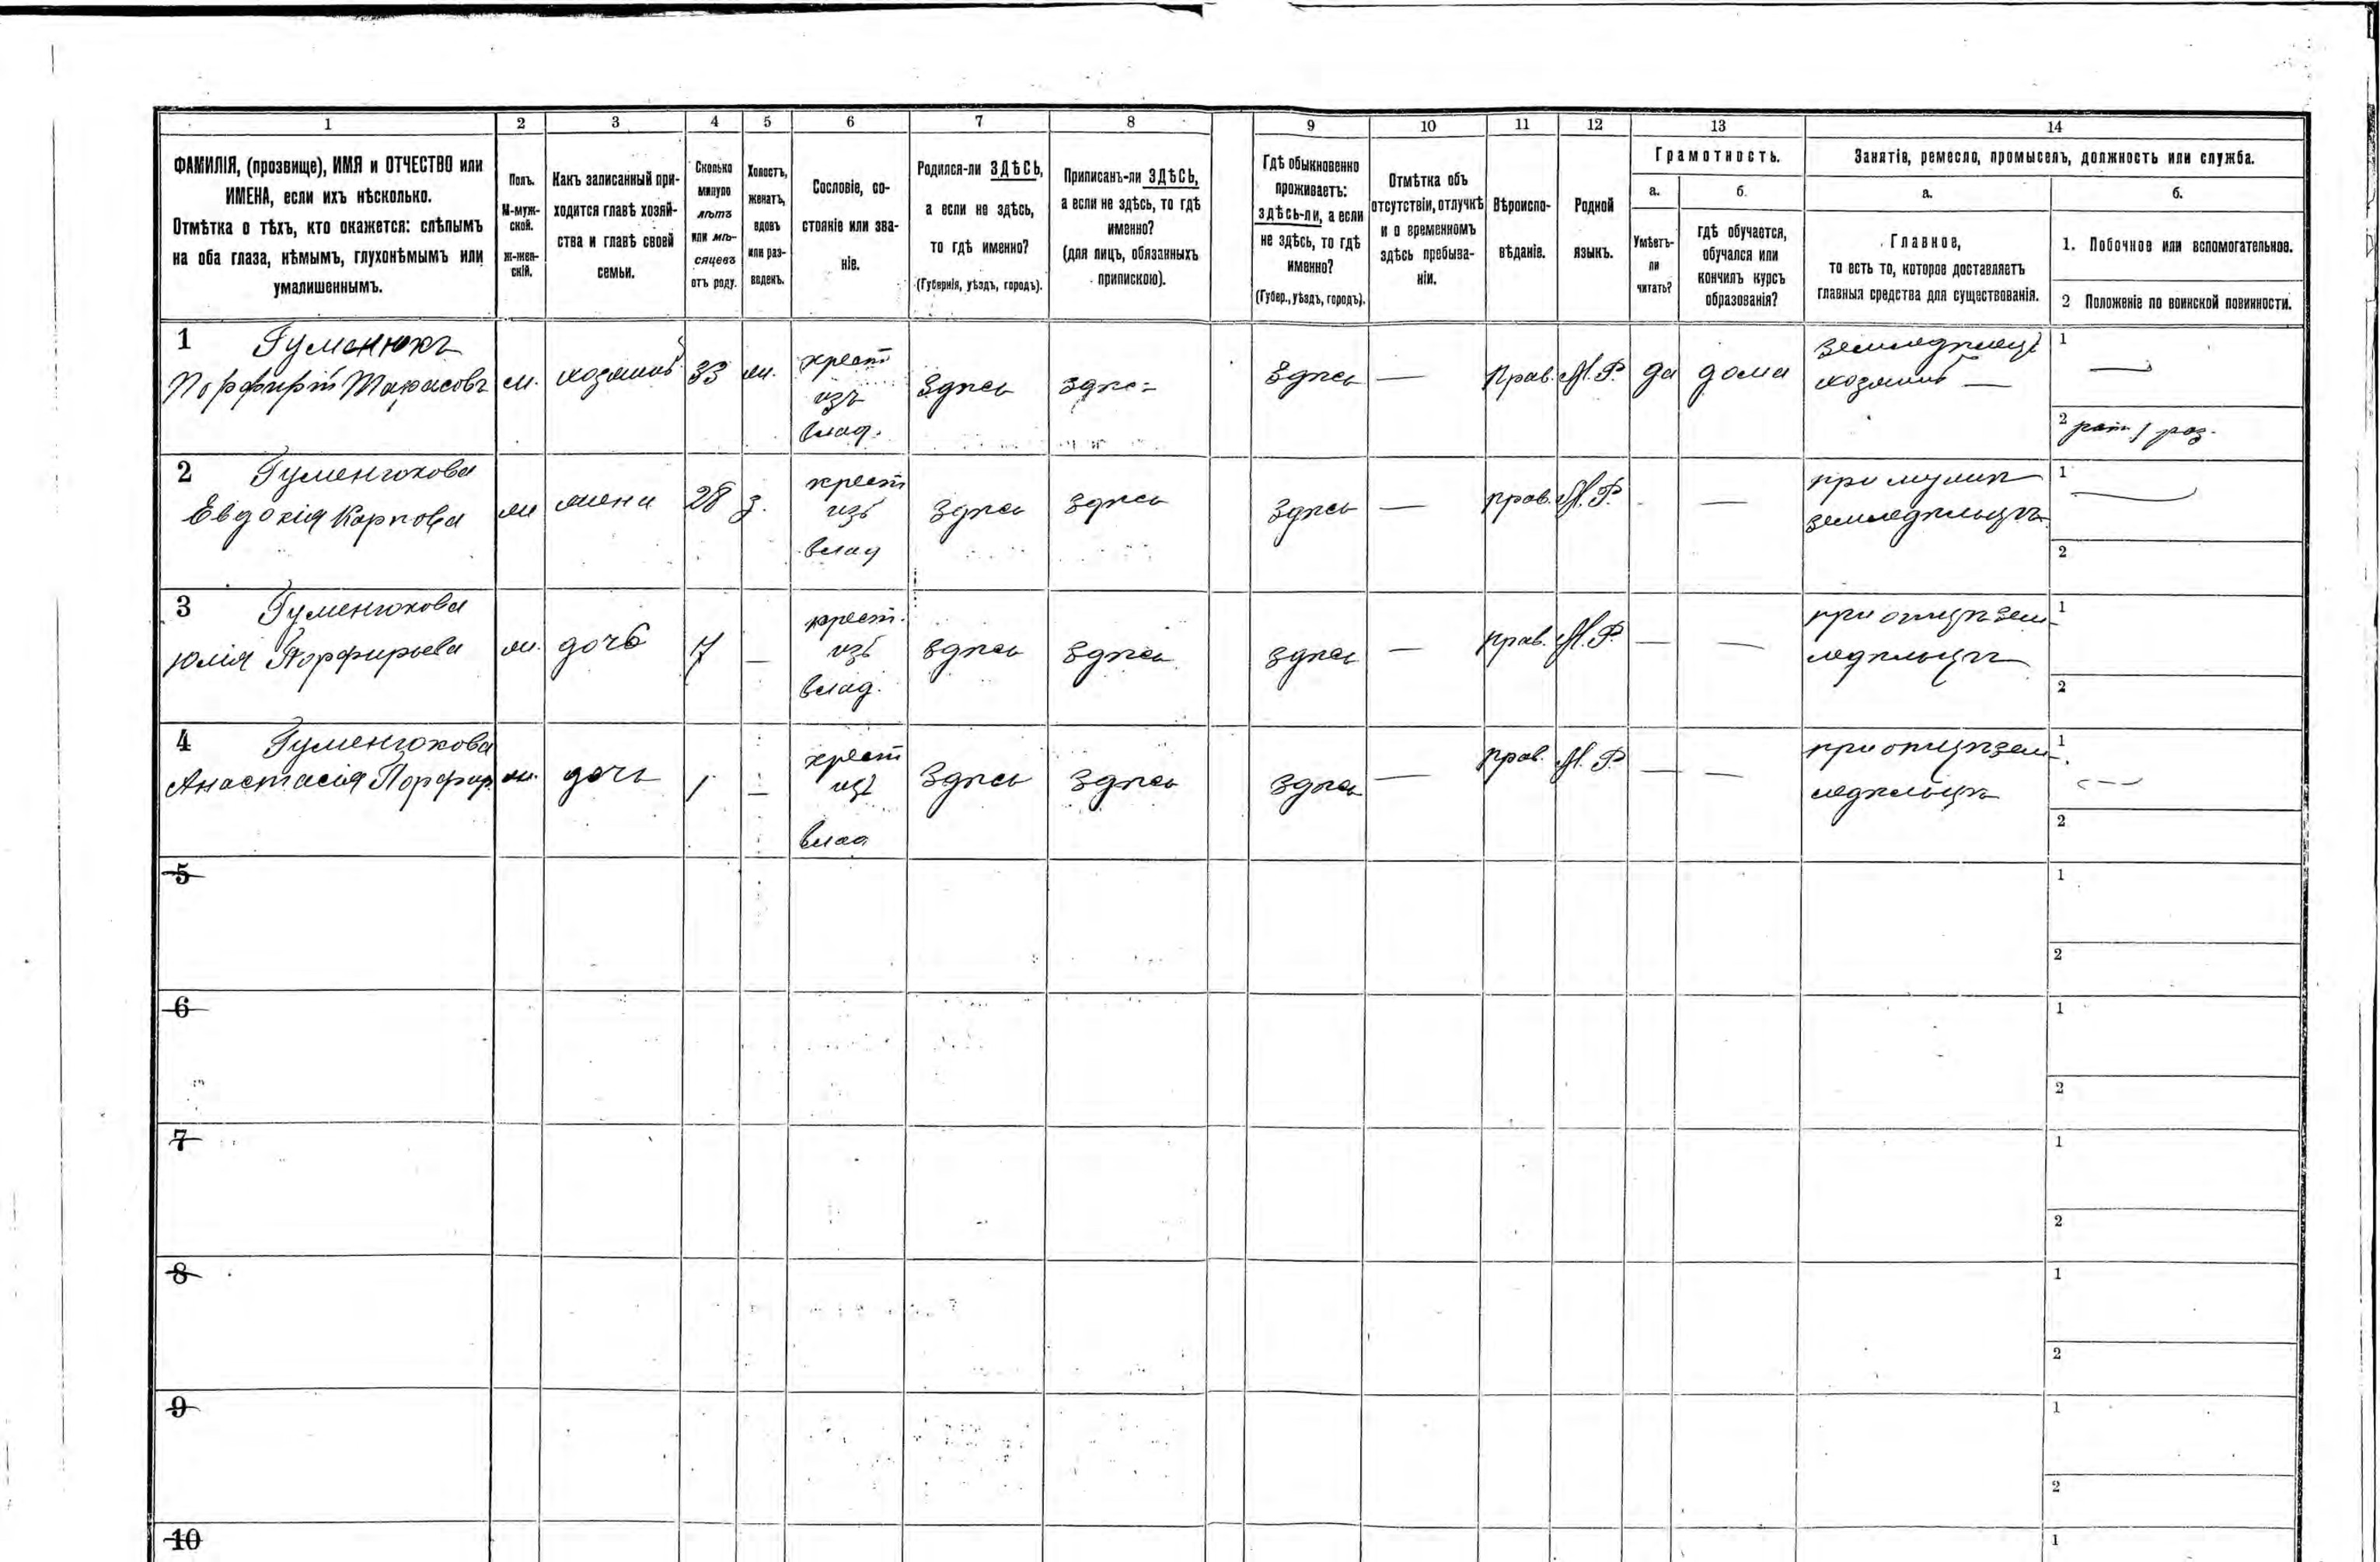 1 2 3 4 5 6 7 8 9 10 11 12 13 14
ФАМИЛІЯ, (прозвище), ИМЯ и ОТЧЕСТВО или
ИМЕНА, если ихъ нѣсколько.
Отмѣтка о тѣхъ, кто окажется: слѣпымъ
на оба глаза, нѣмымъ, глухонѣмымъ или
умалишеннымъ.
Полъ.
М-муж-
ской.
ж-жен-
скій.
Какъ записанный при-
ходится главѣ хозяй-
ства и главѣ своей
семьи.
Сколько
минуло
лѣтъ
или мѣ-
сяцевъ
отъ роду.
Холостъ,
женатъ,
вдовъ
или раз-
веденъ.
Сословіе, со-
стояніе или зва-
ніе.
Родился-ли ЗДѢСЬ,
а если не здѣсь,
то гдѣ именно?
(Губернія, уѣздъ, городъ).
Приписанъ-ли ЗДѢСЬ,
а если не здѣсь, то гдѣ
именно?
(для лицъ, обязанныхъ
припискою).
Гдѣ обыкновенно
проживаетъ:
здѣсь-ли, а если
не здѣсь, то гдѣ
именно?
(Губер., уѣздъ, городъ).
Отмѣтка объ
отсутствіи, отлучкѣ
и о временномъ
здѣсь пребыва-
ніи.
Вѣроиспо-
вѣданіе.
Родной
языкъ.
Грамотность.
а.
Умѣетъ-
ли
читать?
б.
гдѣ обучается,
обучался или
кончилъ курсъ
образованія?
Занятіе, ремесло, промыселъ, должность или служба.
а.
Главное,
то есть то, которое доставляетъ
главныя средства для существованія.
б.
1. Побочное или вспомогательное.
2 Положеніе по воинской повинности.
1 Гуменюкъ
Порфирій Тарасовъ
м.
хозяинъ
33
ж.
крест
изъ
влад.
здѣсь
здѣс=
здѣсь
—
Прав.
М.Р.
да
дома
земледѣлецъ
хозяинъ —
1 —
2 рат 1 раз.
2 Гуменюкова
Евдокія Карпова
ж
жена
28
з.
крест
изъ
влад
здѣсь
здѣсь
здѣсь
—
прав.
М.Р.
-
—
при мужѣ
земледѣльцѣ
1 —
2
3 Гуменюкова
Юлія Порфирьева
ж.
дочь
4
—
крест.
изъ
влад.
здѣсь
здѣсь
здѣсь
—
прав.
М.Р.
—
—
при отцѣ зем
ледѣльцѣ
1 —
2
4 Гуменюкова
Анастасія Порфир.
ж.
дочь
1
—
крест
изъ
влад
здѣсь
здѣсь
здѣсь
—
прав.
М.Р.
—
—
при отцѣ зем
ледѣльцѣ
1 —
2
5
1
2
6
1
2
7
1
2
8
1
2
9
1
2
10
1